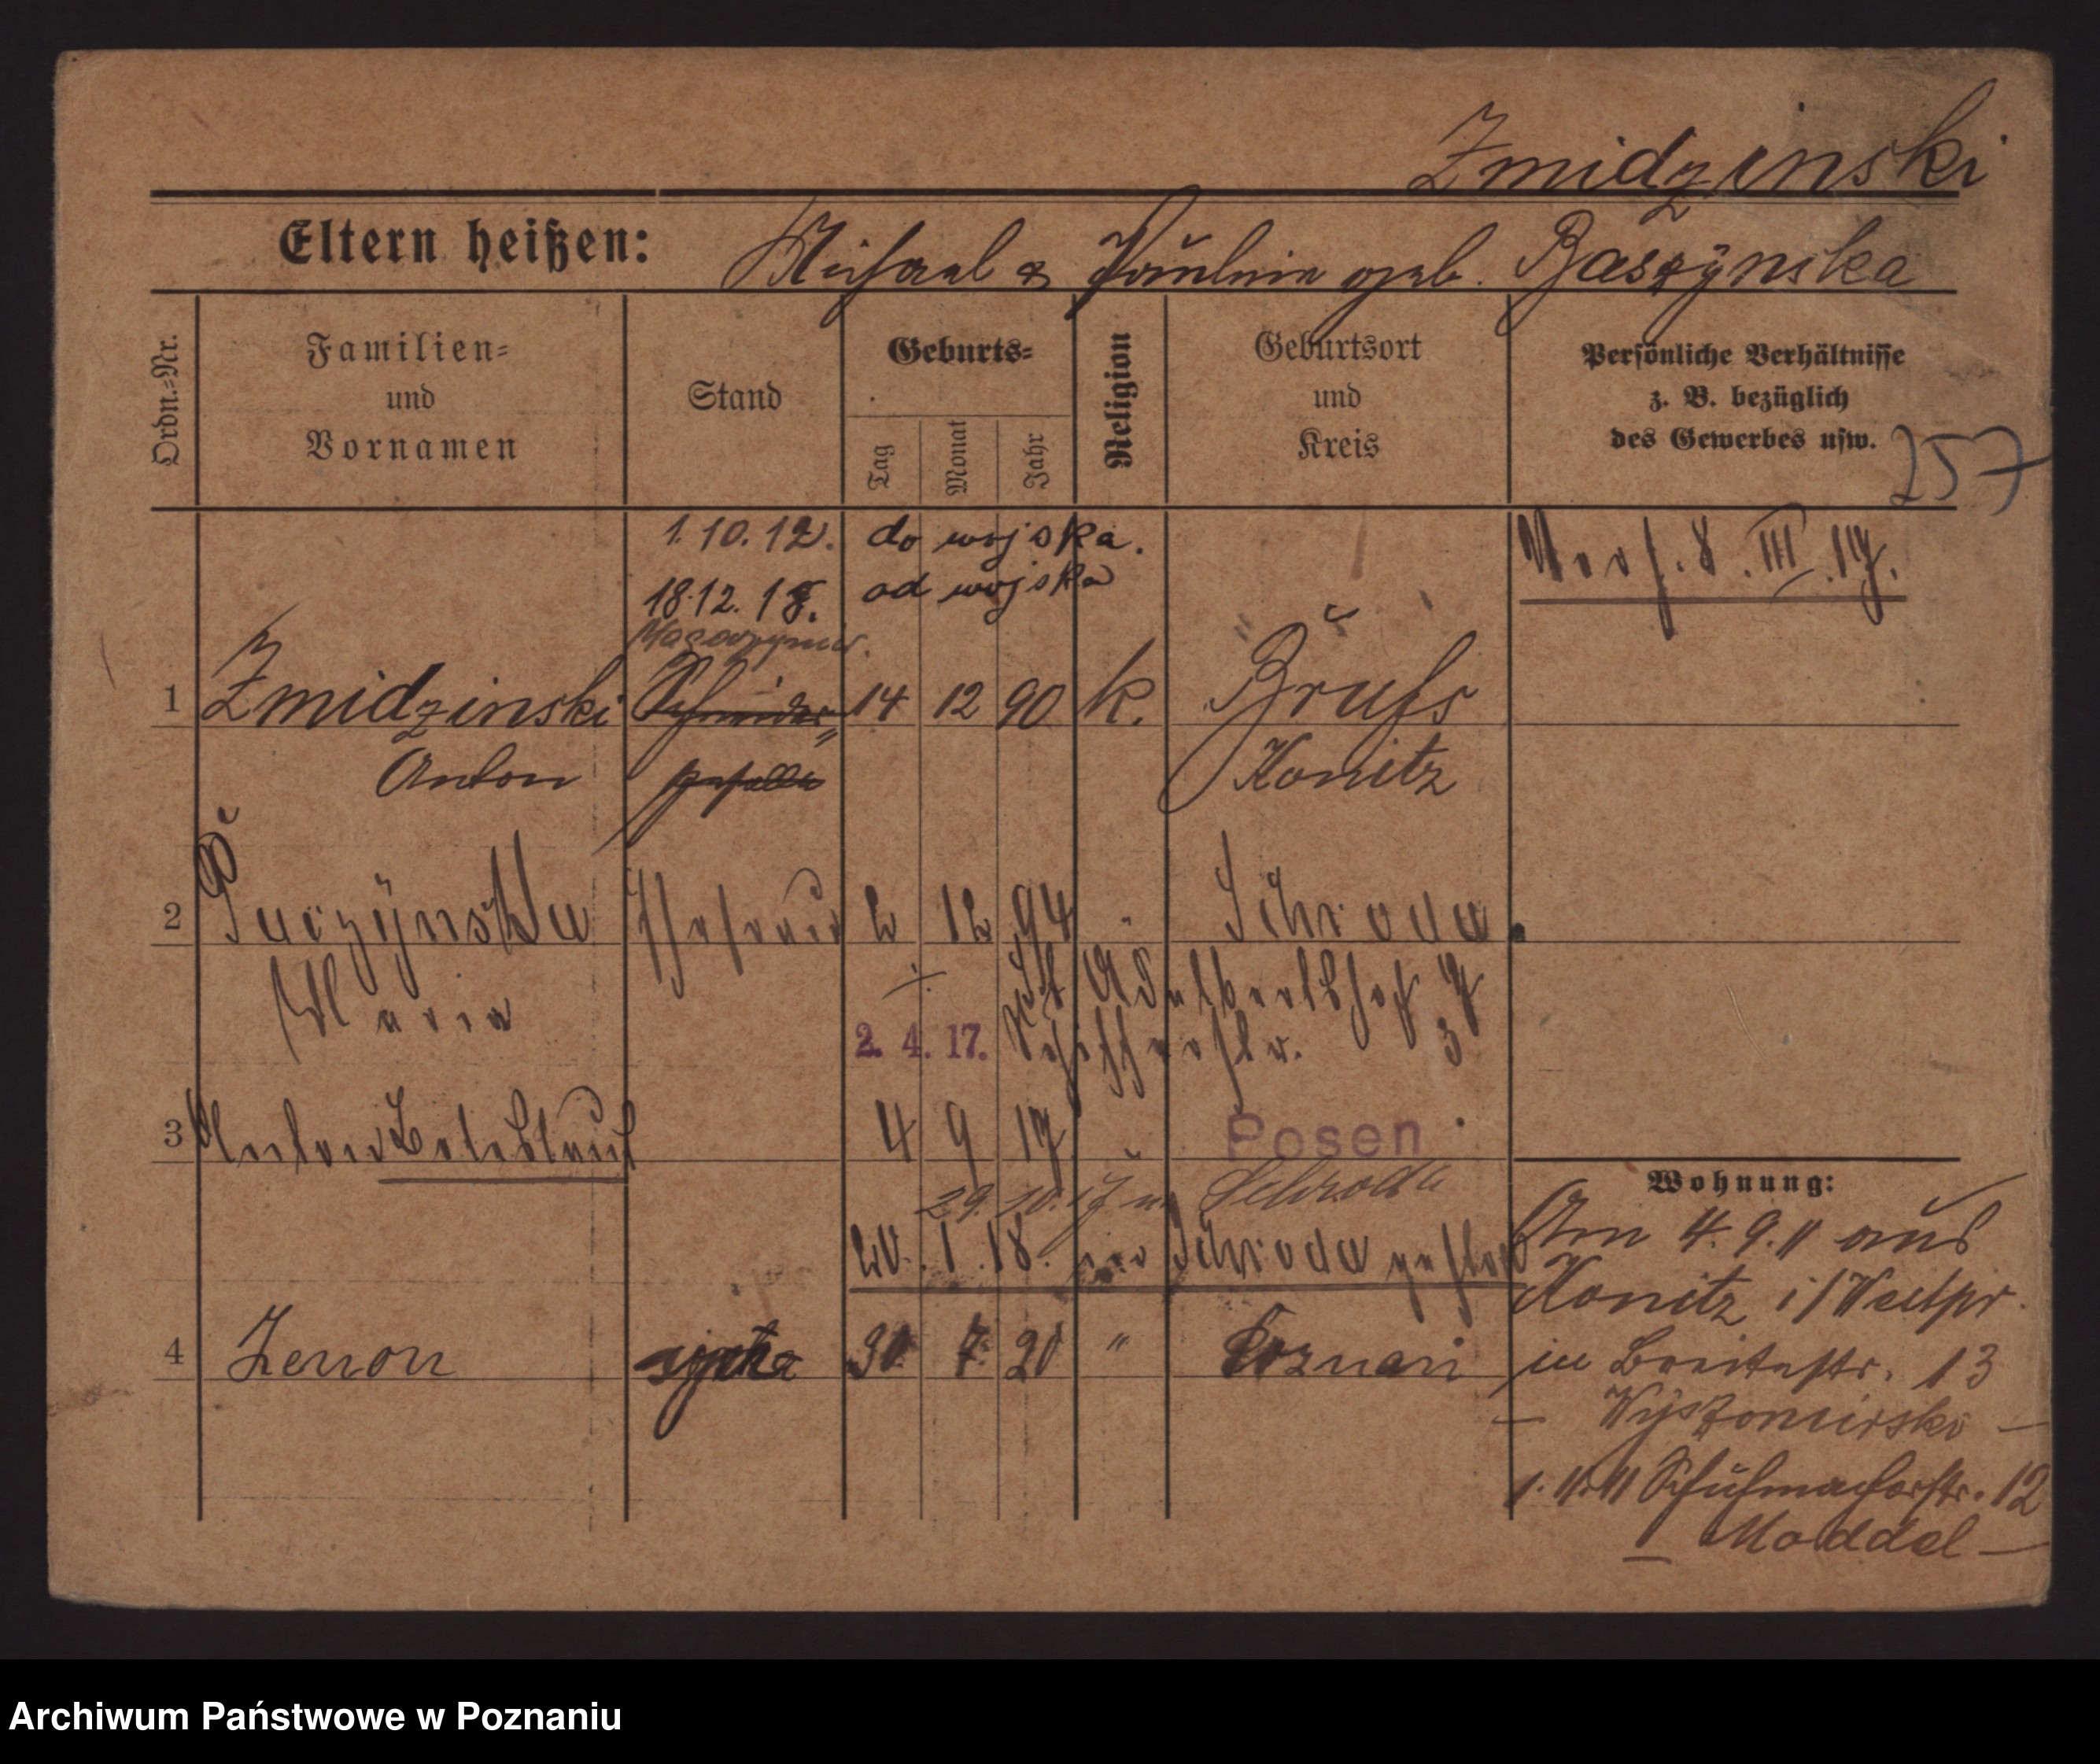 Zmidzinski
Eltern heißen: Michael & Paulina geb. Baszynska
Ordn.-Nr.
Familien-
und
Vornamen
Stand
Geburts-
Tag
Monat
Jahr
Religion
Geburtsort
und
Kreis
Persönliche Verhältnisse
z. B. bezüglich
des Gewerbes usw.
257
1. 10. 12. do wojska.
18.12. 18. od wojska
8. III. 17.
1 Zmidzinski Schneider 14 12 90 k. Bruss
Anton geselle Konitz
2 Puczynska Ehefrau 2 12 94 " Schroda
Maria
St Adalbertshof
2. 4. 17. 3
3 Anton Boleslaus 4 9 17 " Posen
29. 10. 17 n. Schroda
20. 1. 18. in Schroda gestorb
4 Zenon 30 7 20 " Poznań
Wohnung:
Am 4. 9. 11 aus
Konitz i/Westpr.
in Breitestr. 13
— Wyszomirski —
1. 11. 11 Schuhmacherstr. 12
— Moddel —
Archiwum Państwowe w Poznaniu